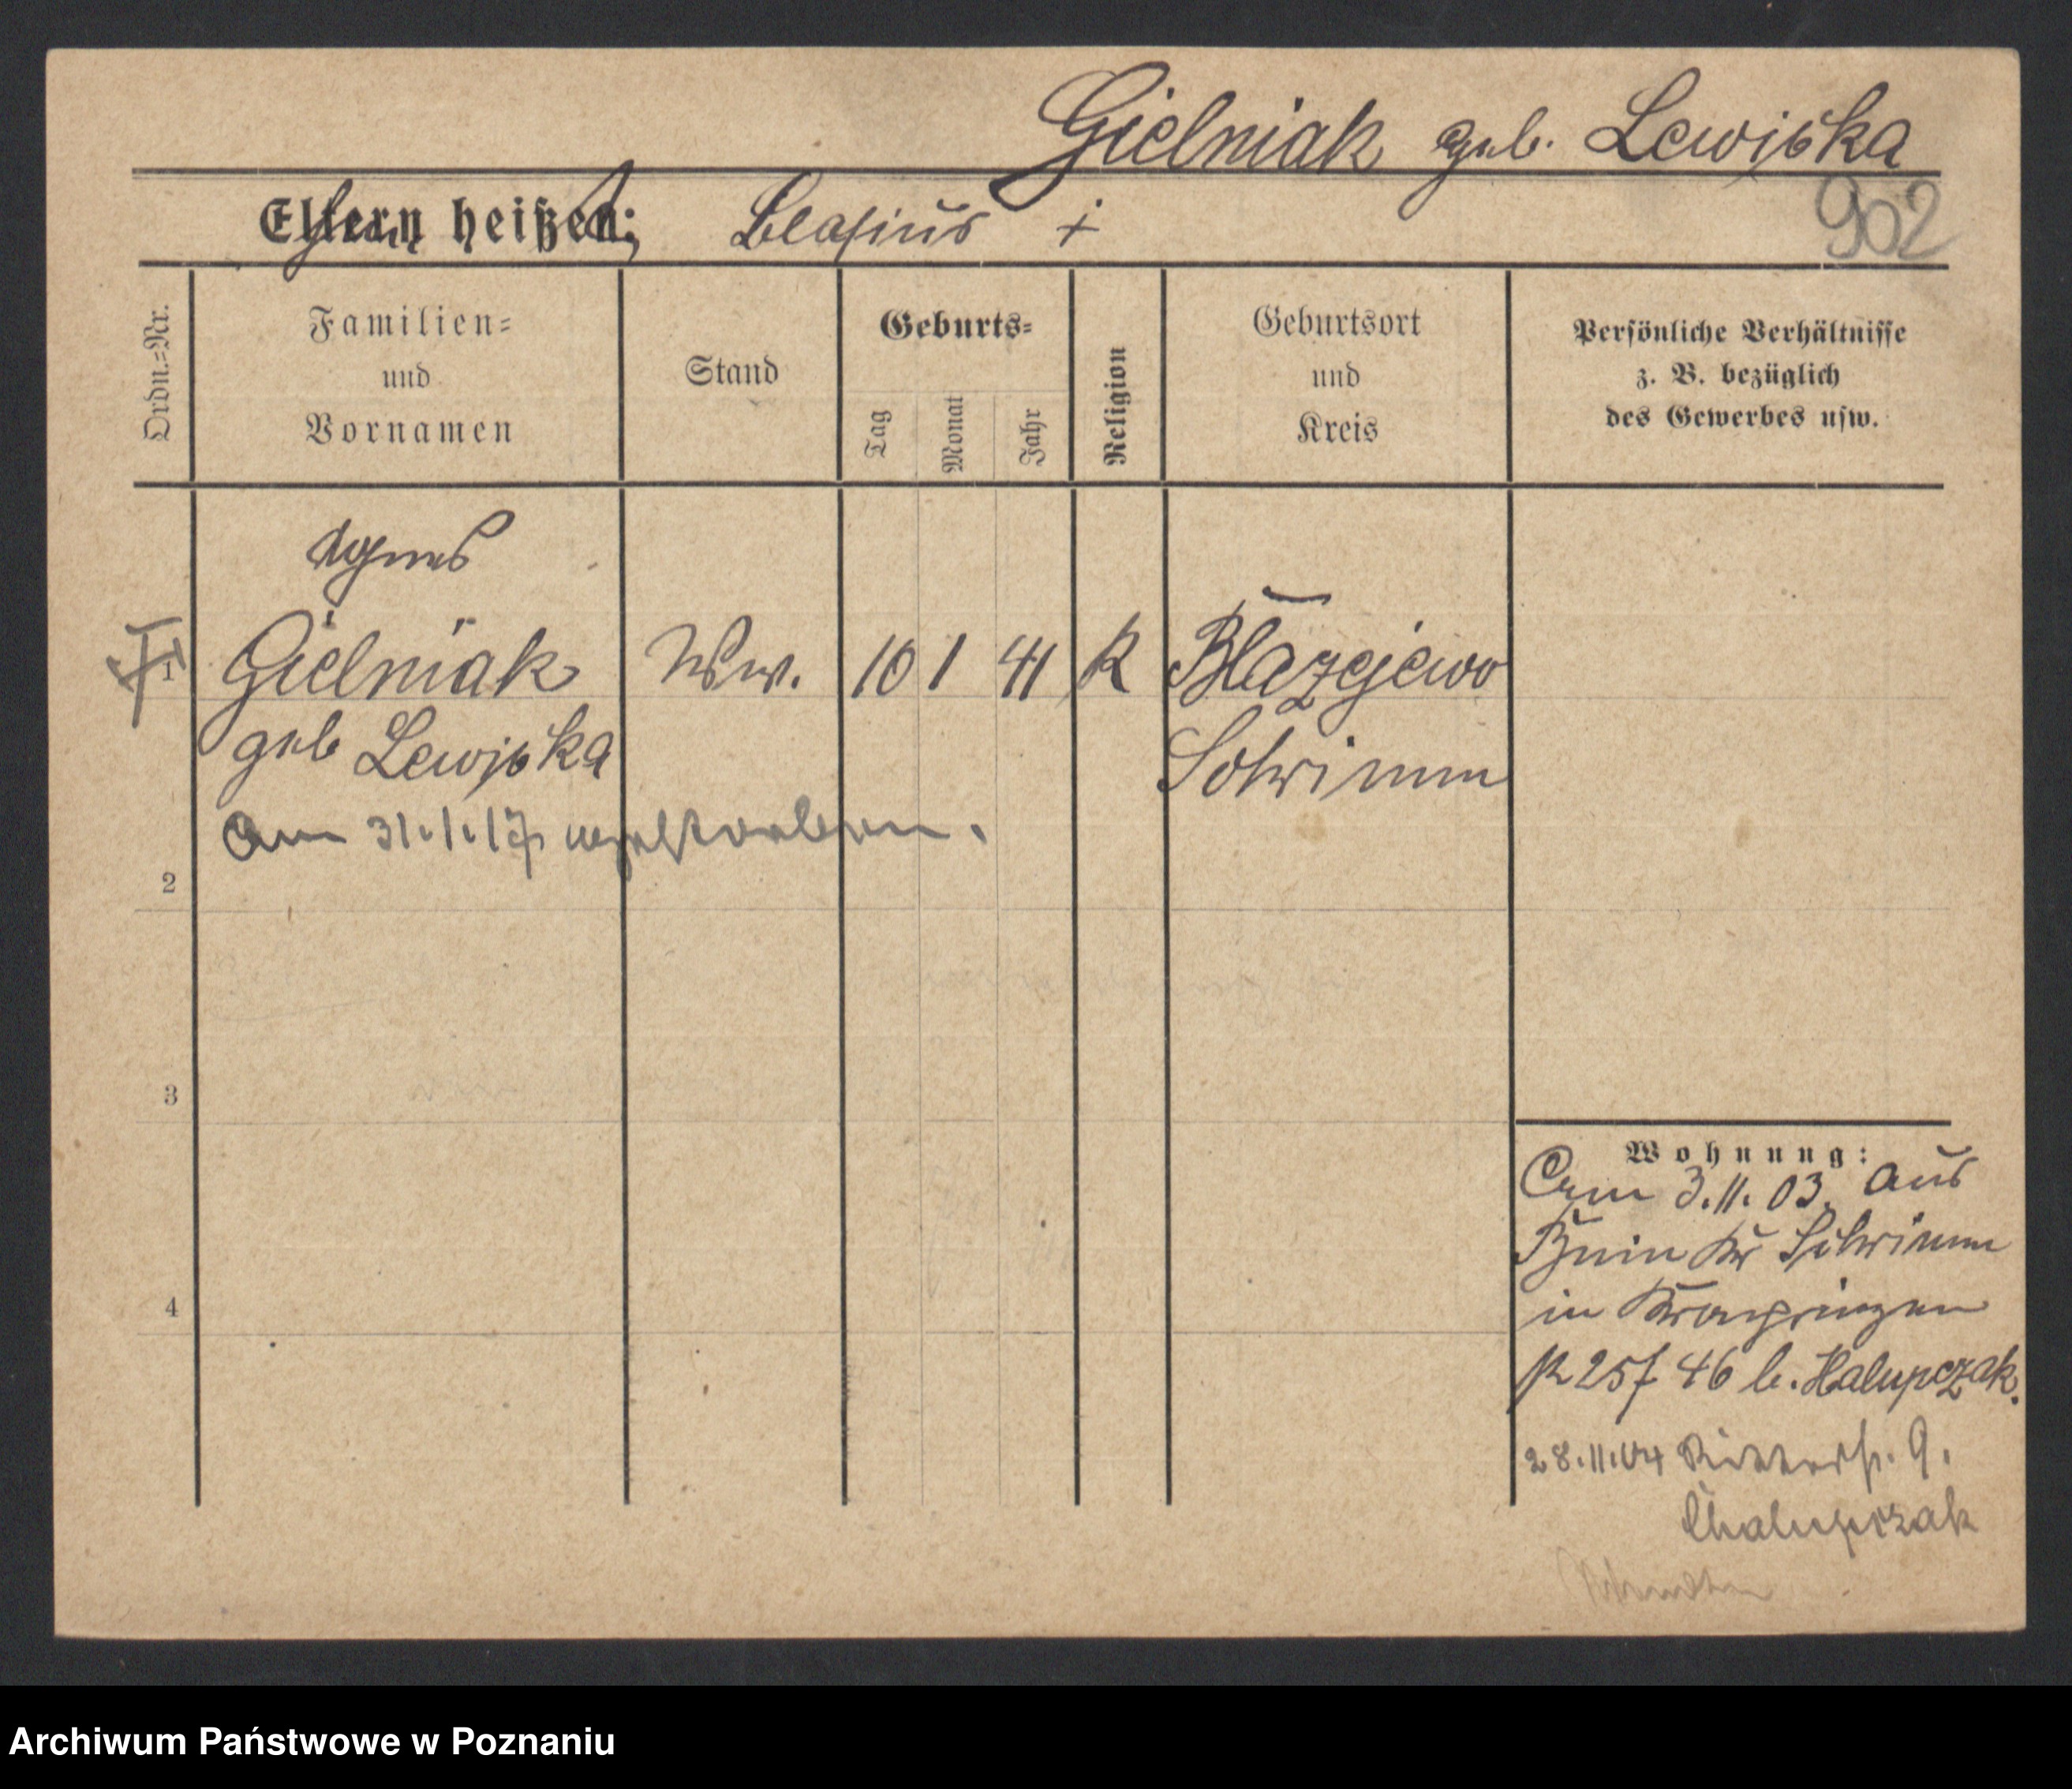 Gielniak geb. Lewiska
Eltern heißen: Blasius +
902
Ordn.=Nr.
Familien=
und
Vornamen
Stand
Geburts=
Tag
Monat
Jahr
Religion
Geburtsort
und
Kreis
Persönliche Verhältnisse
z. B. bezüglich
des Gewerbes usw.
Agnes
1 Gielniak Ww. 10 1 41 K Błażejewo
geb Lewiska Schrimm
Am 31.1.17 gestorben.
2
3
4
Wohnung:
Am 3.11.03. aus
Bnin Kr Schrimm
in Kronprinzen
str 46 b. Halupczak.
28.11.04 Ritterstr. 9.
Chalupczak
Archiwum Państwowe w Poznaniu